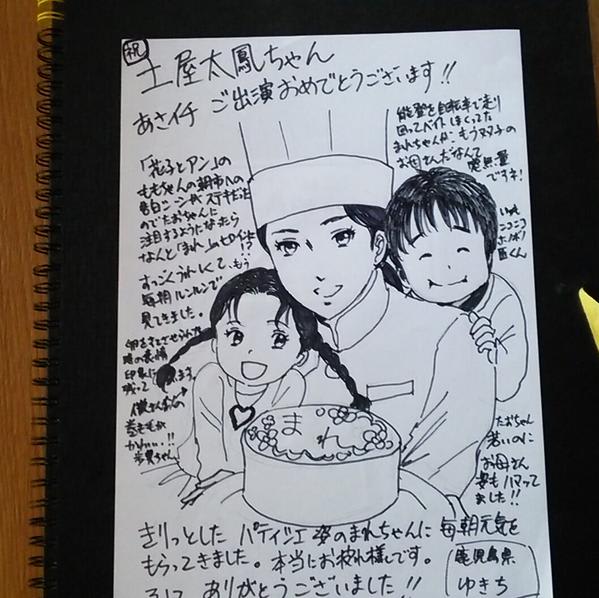 祝
土屋太鳳ちゃん
あさイチ ご出演おめでとうございます!!
「花子とアン」の
ももちゃんの朝市への
告白シーンがステキだった
のでたおちゃんに
注目するようになったら
なんと「まれ」のヒロインに!?
すっごくうれしくて、もう
毎朝ルンルンで
見てきました。
能登を自転車で走り
回ってバイトしまくってた
まれちゃんが、もう双子の
お母さんだなんて
感無量
ですネ!
いつも
ニコニコ
匠くん
時の表情
印象に
残って
ます。
巻き毛が
かわいい!!
歩実ちゃん
まれ
たおちゃん
若いのに
お母さん
姿もハマって
ました!!
きりっとした パティシエ姿のまれちゃんに 毎朝元気を
もらってきました。本当にお疲れ様です。
ありがとうございました!!
鹿児島県
ゆきち